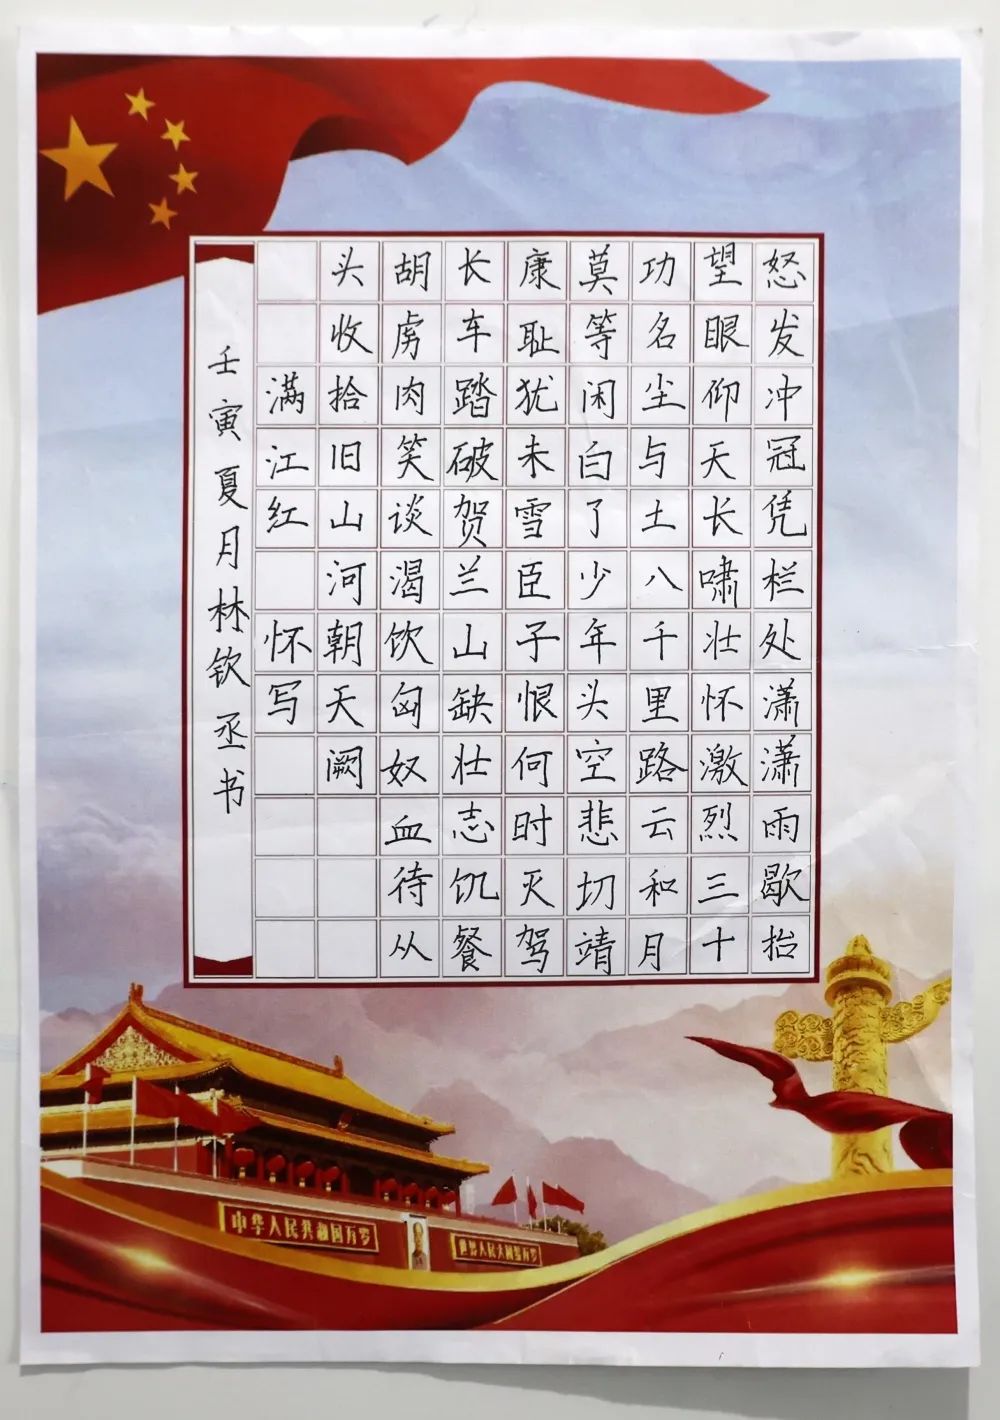 怒发冲冠凭栏处潇潇雨歇抬
望眼仰天长啸壮怀激烈三十
功名尘与土八千里路云和月
莫等闲白了少年头空悲切靖
康耻犹未雪臣子恨何时灭驾
长车踏破贺兰山缺壮志饥餐
胡虏肉笑谈渴饮匈奴血待从
头收拾旧山河朝天阙
满江红 怀写
壬寅夏月林钦丞书
中华人民共和国万岁
世界人民大团结万岁